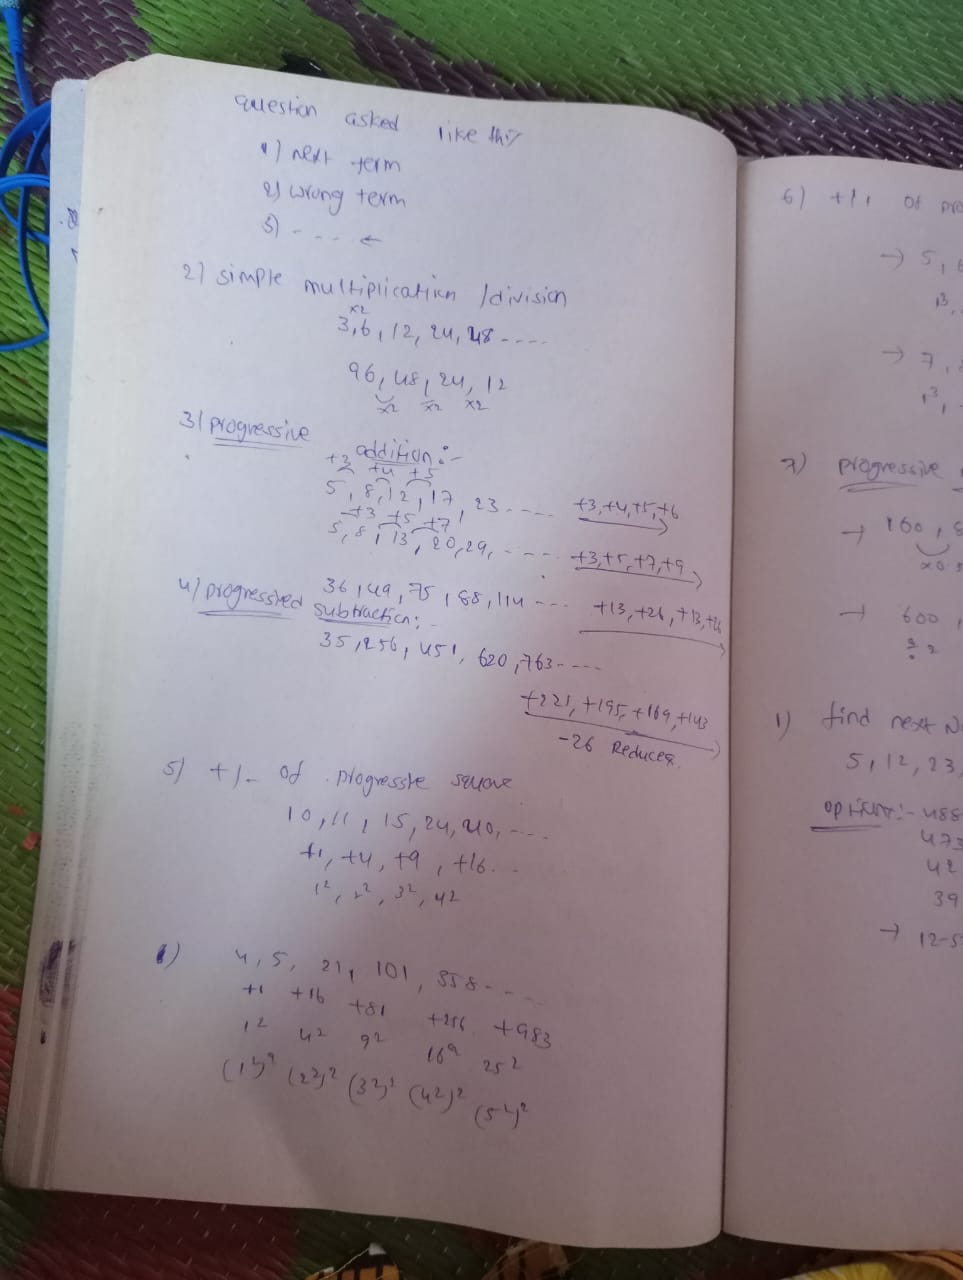 question asked like this
1) next term
2) wrong term
3) - - - - ←
2) simple multiplication /division
x2
3,6, 12, 24, 48 - - - -
96, 48, 24, 12
x2 x2 x2
3) progressive addition:-
+3 +4 +5
5, 8, 12, 17, 23 - - - - +3,+4,+5,+6
+3 +5 +7
5, 8, 13, 20, 29, - - - - +3,+5,+7,+9
36, 49, 75, 88, 114 - - - +13, +26, +13, +26
4) progressived subtraction:-
35, 256, 451, 620, 763 - - - -
+221, +195, +169, +143
-26 Reduces
5) +/- of progresste square
10, 11, 15, 24, 40, - - -
+1, +4, +9, +16 - -
1², 2², 3², 4²
1) 4, 5, 21, 101, 358 - - - -
+1 +16 +81 +256 +983
1² 4² 9² 16² 25²
(1²)² (2²)² (3²)² (4²)² (5²)²
6) +/, of pro
→ 5, 6
1³,
→ 7,
1³,
7) progressive
→ 160, 8
x0.5
→ 600,
÷ 2
1) find next N
5, 12, 23,
option:- 488
473
42
39
→ 12-5